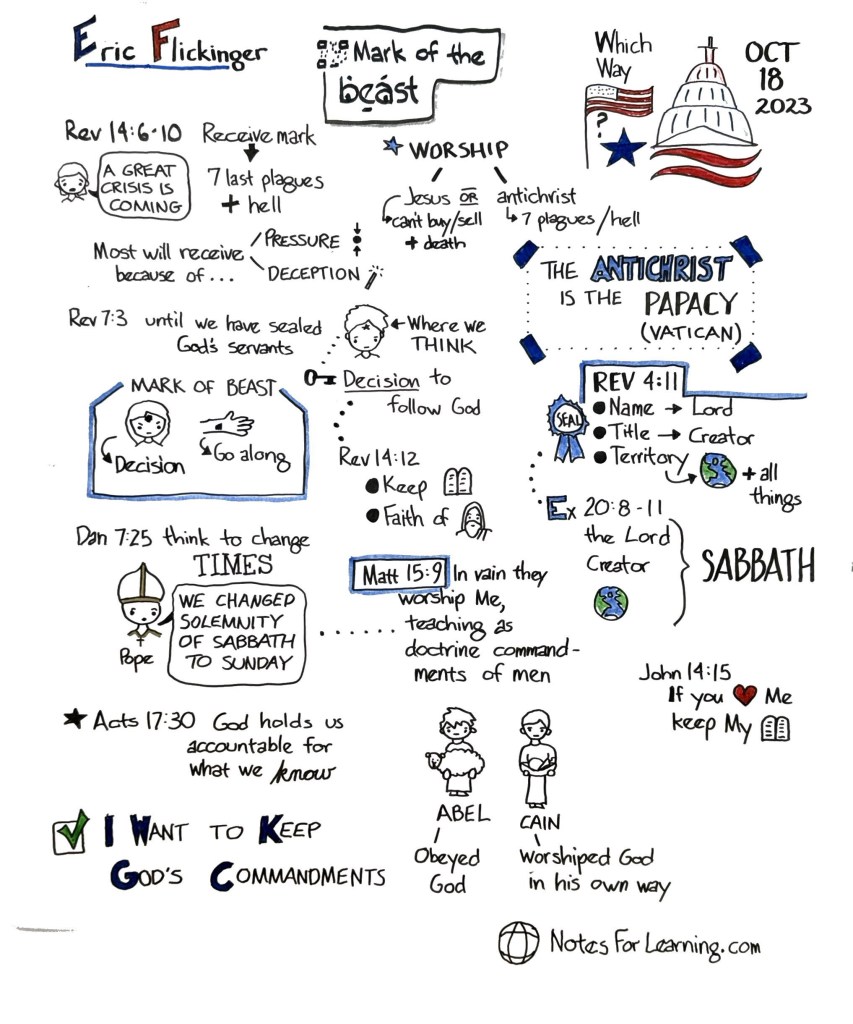 Eric Flickinger
Mark of the
beast
Which
Way
?
OCT
18
2023
Rev 14:6-10
A GREAT
CRISIS IS
COMING
Receive mark
7 last plagues
+ hell
WORSHIP
Jesus OR antichrist
can't buy/sell
+ death
7 plagues/hell
Most will receive
because of...
PRESSURE
DECEPTION
THE ANTICHRIST
IS THE PAPACY
(VATICAN)
Rev 7:3 until we have sealed
God's servants
Where we
THINK
Decision to
follow God
MARK OF BEAST
Decision
Go along
REV 4:11
SEAL
Name → Lord
Title → Creator
Territory
+ all
things
Rev 14:12
Keep
Faith of
Ex 20:8-11
the Lord
Creator
SABBATH
Dan 7:25 think to change
TIMES
Pope
WE CHANGED
SOLEMNITY
OF SABBATH
TO SUNDAY
Matt 15:9 In vain they
worship Me,
teaching as
doctrine command-
ments of men
John 14:15
If you ❤ Me
keep My
Acts 17:30 God holds us
accountable for
what we know
ABEL
Obeyed
God
CAIN
Worshiped God
in his own way
I WANT TO KEEP
GOD'S COMMANDMENTS
NotesForLearning.com